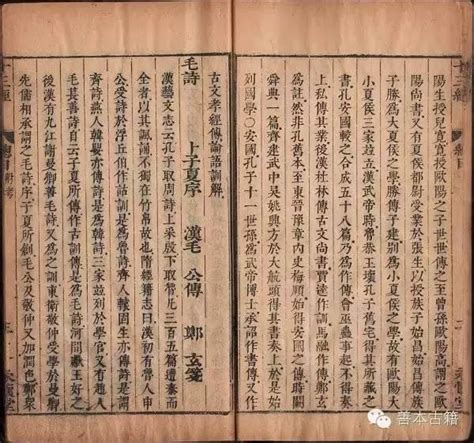 陽生授兒寬寬授歐陽之子世世傳之至曾孫歐陽高謂之歐
陽尚書又有夏侯都尉受業於張生以授族子始昌始昌傳族
子勝爲大夏侯之學勝傳子建別爲小夏侯之學故有歐陽大
小夏侯三家竝立漢武帝時魯恭王壞孔子舊宅得其所藏之
書孔安國較之合成五十八篇乃爲作傳會巫蠱事起不得奏
上私傳其業後漢杜林傳古文尚書賈逵作訓馬融作傳鄭玄
舊本至東晉豫章內史
典一篇齊建武中吳姚興方於大航頭得其書奏上
列國學○安國孔子十一世孫爲武帝博士承詔作書傳又作
古文孝經傳論語訓解
毛詩 卜子夏序 漢毛公傳 鄭玄箋
漢藝文志云孔子取周詩上采殷下取魯凡三百五篇遭秦而
全者以其諷誦不獨在竹帛故也隋經籍志曰漢初有魯人申
公受詩於浮丘伯作詁訓是爲魯詩齊人轅固生亦傳詩是爲
齊詩燕人韓嬰亦傳詩是爲韓詩三家竝列於學官又有趙人
毛萇善詩自云子夏所傳作詁訓傳是爲毛詩河間獻王
後漢有九江謝曼卿善毛詩又爲之訓東海衛敬仲受學於曼卿
先儒相承謂之毛詩序子夏所創毛公及敬仲又加潤色鄭眾
十三經
善本古籍